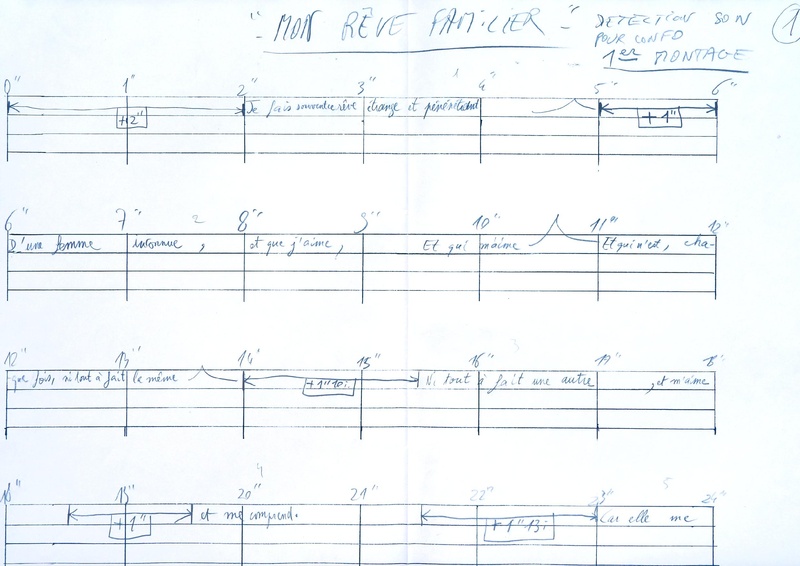 " MON RÊVE FAMILIER " DETECTION SON
POUR CONFO
1er MONTAGE
1
0" 1" 2" 3" 4" 5" 6"
+2" Je fais souvent ce rêve étrange et pénétrant +1"
6" 7" 2 8" 9" 10" 11" 12"
D'une femme inconnue, et que j'aime, Et qui m'aime Et qui n'est, cha-
13" 14" 15" 16" 17" 18"
que fois, ni tout à fait la même +1"10i Ni tout à fait une autre , et m'aime
4 5
19" 20" 21" 22" 23" 24"
+1" et me comprend. +1"13i Car elle me